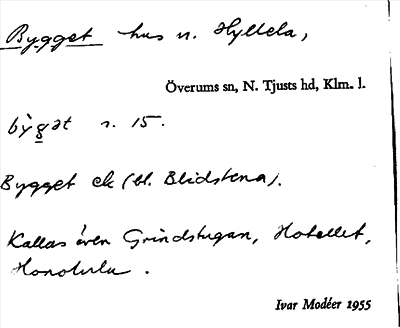 Bygget hus n. Hyllela,
Överums sn, N. Tjusts hd, Klm. l.
bỳgət s. 15.
Bygget ek (bl. Blidstena).
Kallas även Grindstugan, Hotellet,
Honolulu.
Ivar Modéer 1955